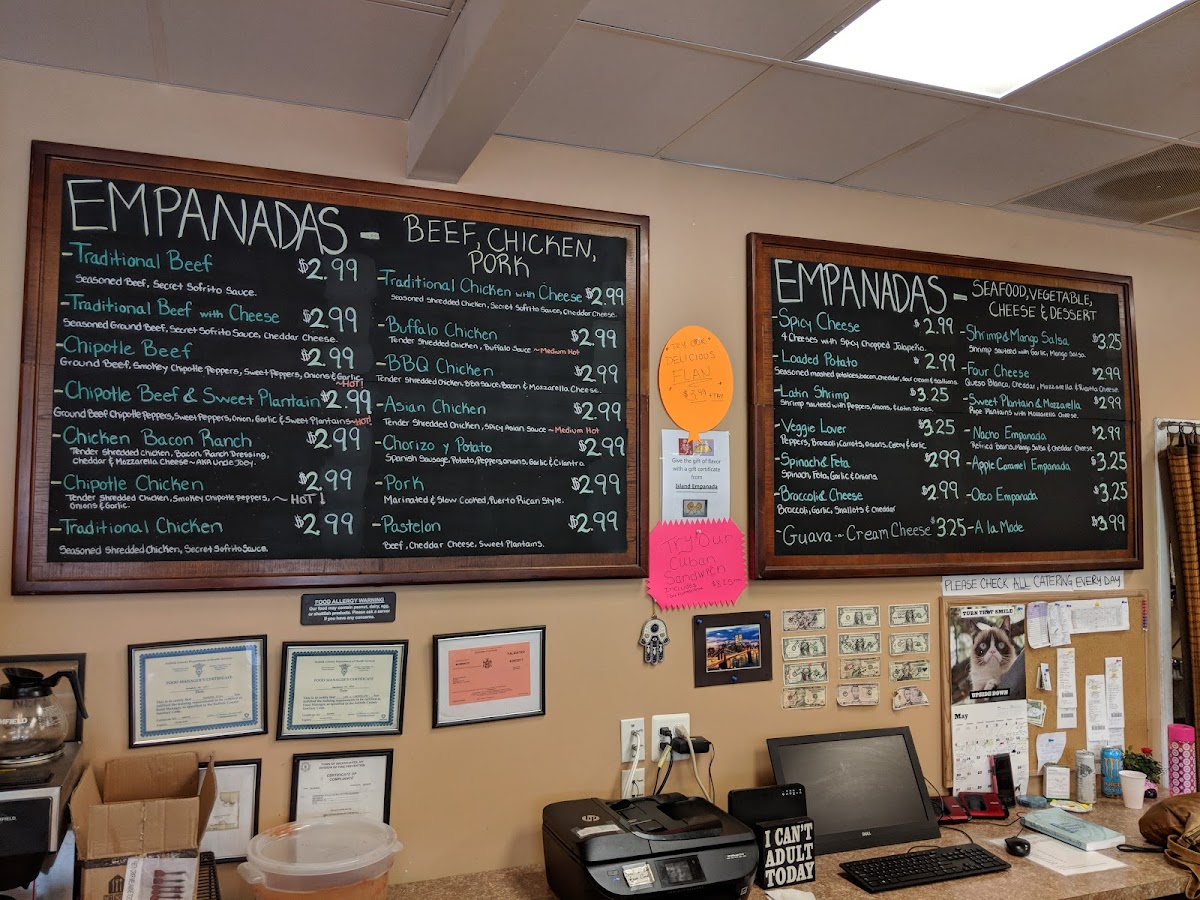 EMPANADAS - BEEF, CHICKEN,
PORK
-Traditional Beef $2.99
Seasoned Beef, Secret Sofrito Sauce.
-Traditional Beef with Cheese $2.99
Seasoned Ground Beef, Secret Sofrito Sauce, Cheddar Cheese.
-Chipotle Beef $2.99
Ground Beef, Smokey Chipotle Peppers, Sweet Peppers, Onions & Garlic.
~HOT!
-Chipotle Beef & Sweet Plantain $2.99
Ground Beef Chipotle Peppers, Sweet Peppers, Onion, Garlic & Sweet Plantains ~HOT!
-Chicken Bacon Ranch $2.99
Tender Shredded Chicken, Bacon, Ranch Dressing,
Cheddar & Mozzarella Cheese ~ AKA Uncle Joey.
-Chipotle Chicken $2.99
Tender Shredded Chicken, Smokey Chipotle peppers, ~ HOT!
Onions & Garlic.
-Traditional Chicken $2.99
Seasoned Shredded Chicken, Secret Sofrito Sauce.
-Traditional Chicken with Cheese $2.99
Seasoned Shredded Chicken, Secret Sofrito Sauce, Cheddar Cheese.
-Buffalo Chicken $2.99
Tender Shredded Chicken, Buffalo Sauce ~Medium Hot
-BBQ Chicken $2.99
Tender Shredded Chicken, BBQ Sauce, Bacon & Mozzarella Cheese.
-Asian Chicken $2.99
Tender Shredded Chicken, Spicy Asian Sauce ~Medium Hot
-Chorizo y Potato $2.99
Spanish Sausage, Potato, Peppers, onions, Garlic & Cilantro.
-Pork $2.99
Marinated & Slow Cooked, Puerto Rican Style.
-Pastelon $2.99
Beef, Cheddar Cheese, Sweet Plantains.
TRY OUR
DELICIOUS
FLAN
$3.99 +TAX
Give the gift of flavor
with a gift certificate
from
Island Empanada
Try Our
Cuban
Sandwich
EMPANADAS - SEAFOOD, VEGETABLE,
CHEESE & DESSERT
-Spicy Cheese $2.99
4 Cheeses with Spicy Chopped Jalapeño.
-Loaded Potato $2.99
Seasoned mashed potatoes, bacon, cheddar, sour cream & scallions.
-Latin Shrimp $3.25
Shrimp sauteed with Peppers, Onions, & Latin spices.
-Veggie Lover $3.25
Peppers, Broccoli, Carrots, Onions, Celery & Garlic.
-Spinach & Feta $2.99
Spinach, Feta, Garlic & Onions.
-Broccoli & Cheese $2.99
Broccoli, Garlic, Shallots & Cheddar
-Guava ~ Cream Cheese $3.25
-Shrimp & Mango Salsa $3.25
Shrimp sauteed with Garlic, Mango Salsa.
-Four Cheese $2.99
Queso Blanco, Cheddar, Mozzarella & Ricotta Cheese
-Sweet Plantain & Mozzarella $2.99
Ripe Plantains with Mozzarella Cheese.
-Nacho Empanada $2.99
Refried Beans, Mango Salsa & Cheddar Cheese.
-Apple Caramel Empanada $3.25
-Oreo Empanada $3.25
-A la Mode $3.99
PLEASE CHECK ALL CATERING EVERY DAY
FOOD ALLERGY WARNING
Our food may contain peanut, dairy, egg,
or shellfish products. Please ask a server
if you have any concerns.
FOOD MANAGER'S CERTIFICATE
FOOD MANAGER'S CERTIFICATE
CERTIFICATE OF
COMPLIANCE
TURN THAT SMILE
UPSIDE DOWN
May
hp
DELL
I CAN'T
ADULT
TODAY